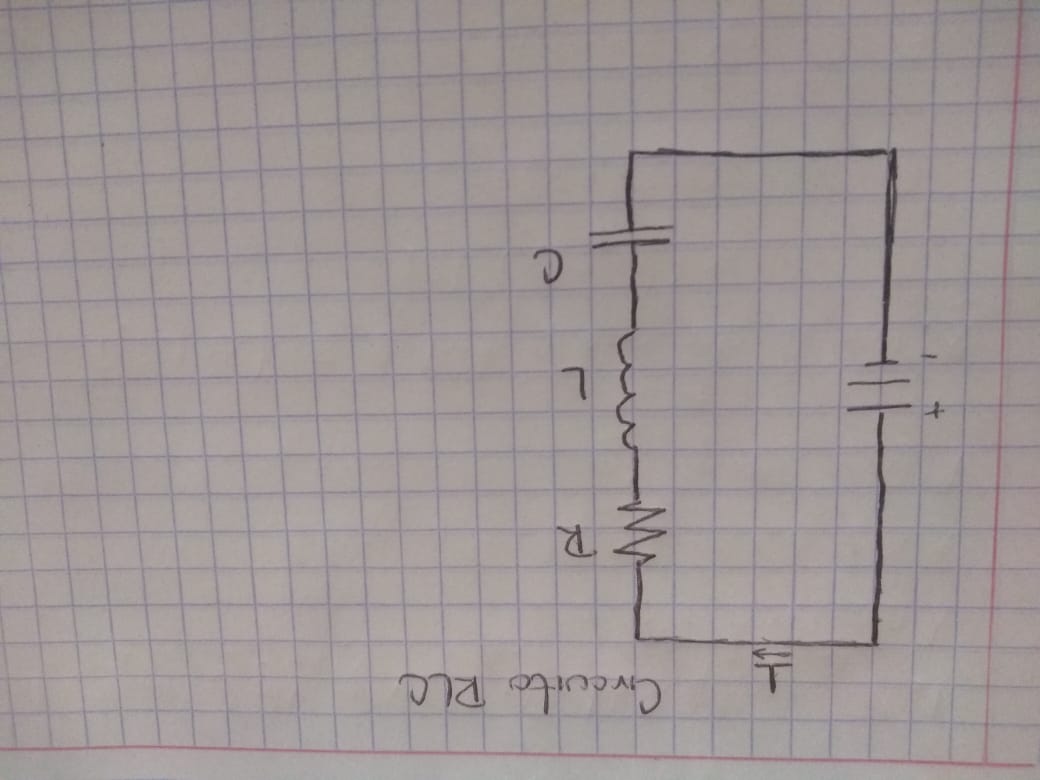 Circuito RLC
I
R
+
L
-
C